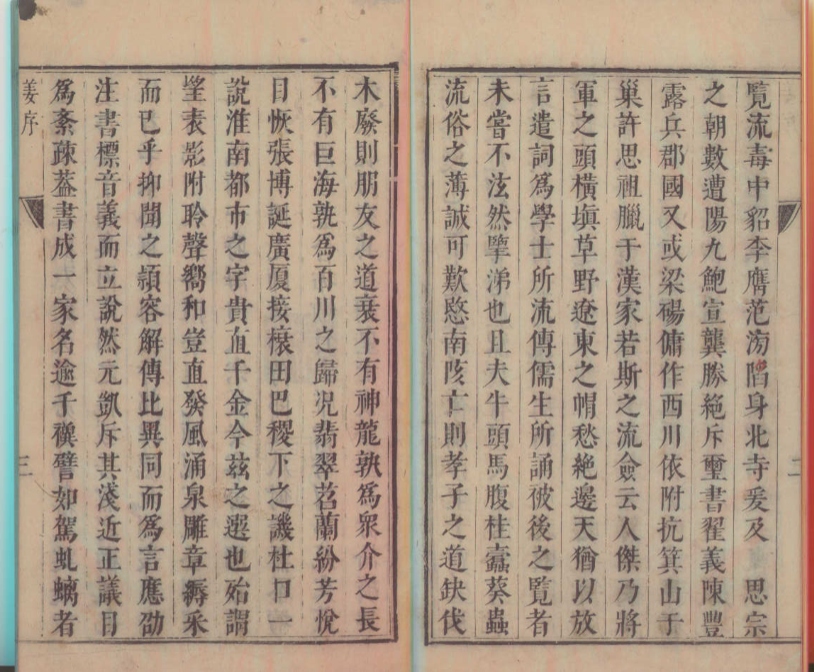 覽流毒中貂李膺范滂陷身北寺爰及　思宗
之朝數遭陽九鮑宣龔勝絶斥璽書翟義陳豐
露兵郡國又或梁碭傭作西川依附抗箕山于
巢許思祖臘于漢家若斯之流僉云人傑乃將
軍之頭橫塡草野遼東之帽愁絶邊天猶以放
言遣詞爲學士所流傳儒生所誦彼後之覽者
未嘗不泫然擥涕也且夫牛頭馬腹桂蠹葵蟲
流俗之薄誠可歎愍南陔亡則孝子之道缺伐
木廢則朋友之道衰不有神龍孰爲衆介之長
不有巨海孰爲百川之歸况翡翠苕蘭紛芳悅
目恢張博誕廣厦接榱田巴稷下之譏杜口一
說淮南都市之字貴直千金今玆之選也殆謂
望表影附聆聲嚮和豈直發風涌泉雕章縟采
而已乎抑聞之潁容解傳比異同而爲言應劭
注書標音義而立說然元凱斥其淺近正議目
爲紊疎蓋書成一家名逾千禩譬如駕虬螭者
姜序
三
二